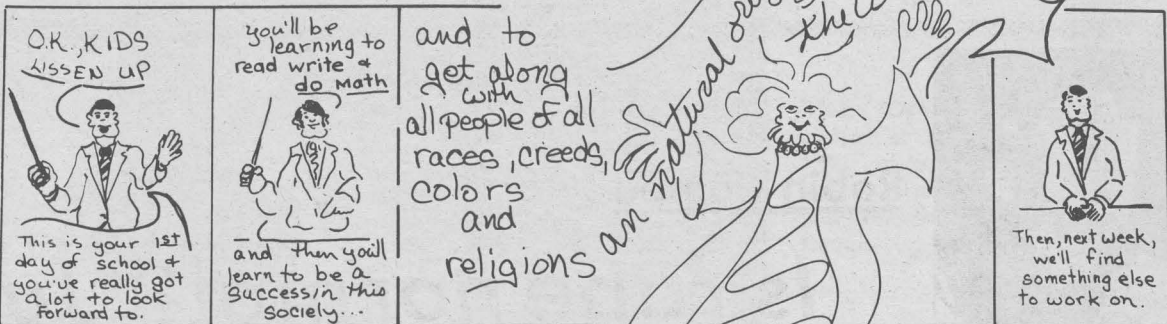 O.K., KIDS
LISSEN UP
This is your 1st
day of school &
you've really got
a lot to look
forward to.
you'll be
learning to
read write &
do math
and then you'll
learn to be a
success in this
society...
and to
get along
with
all people of all
races, creeds,
colors
and
religions
an natural
the
Then, next week,
we'll find
something else
to work on.